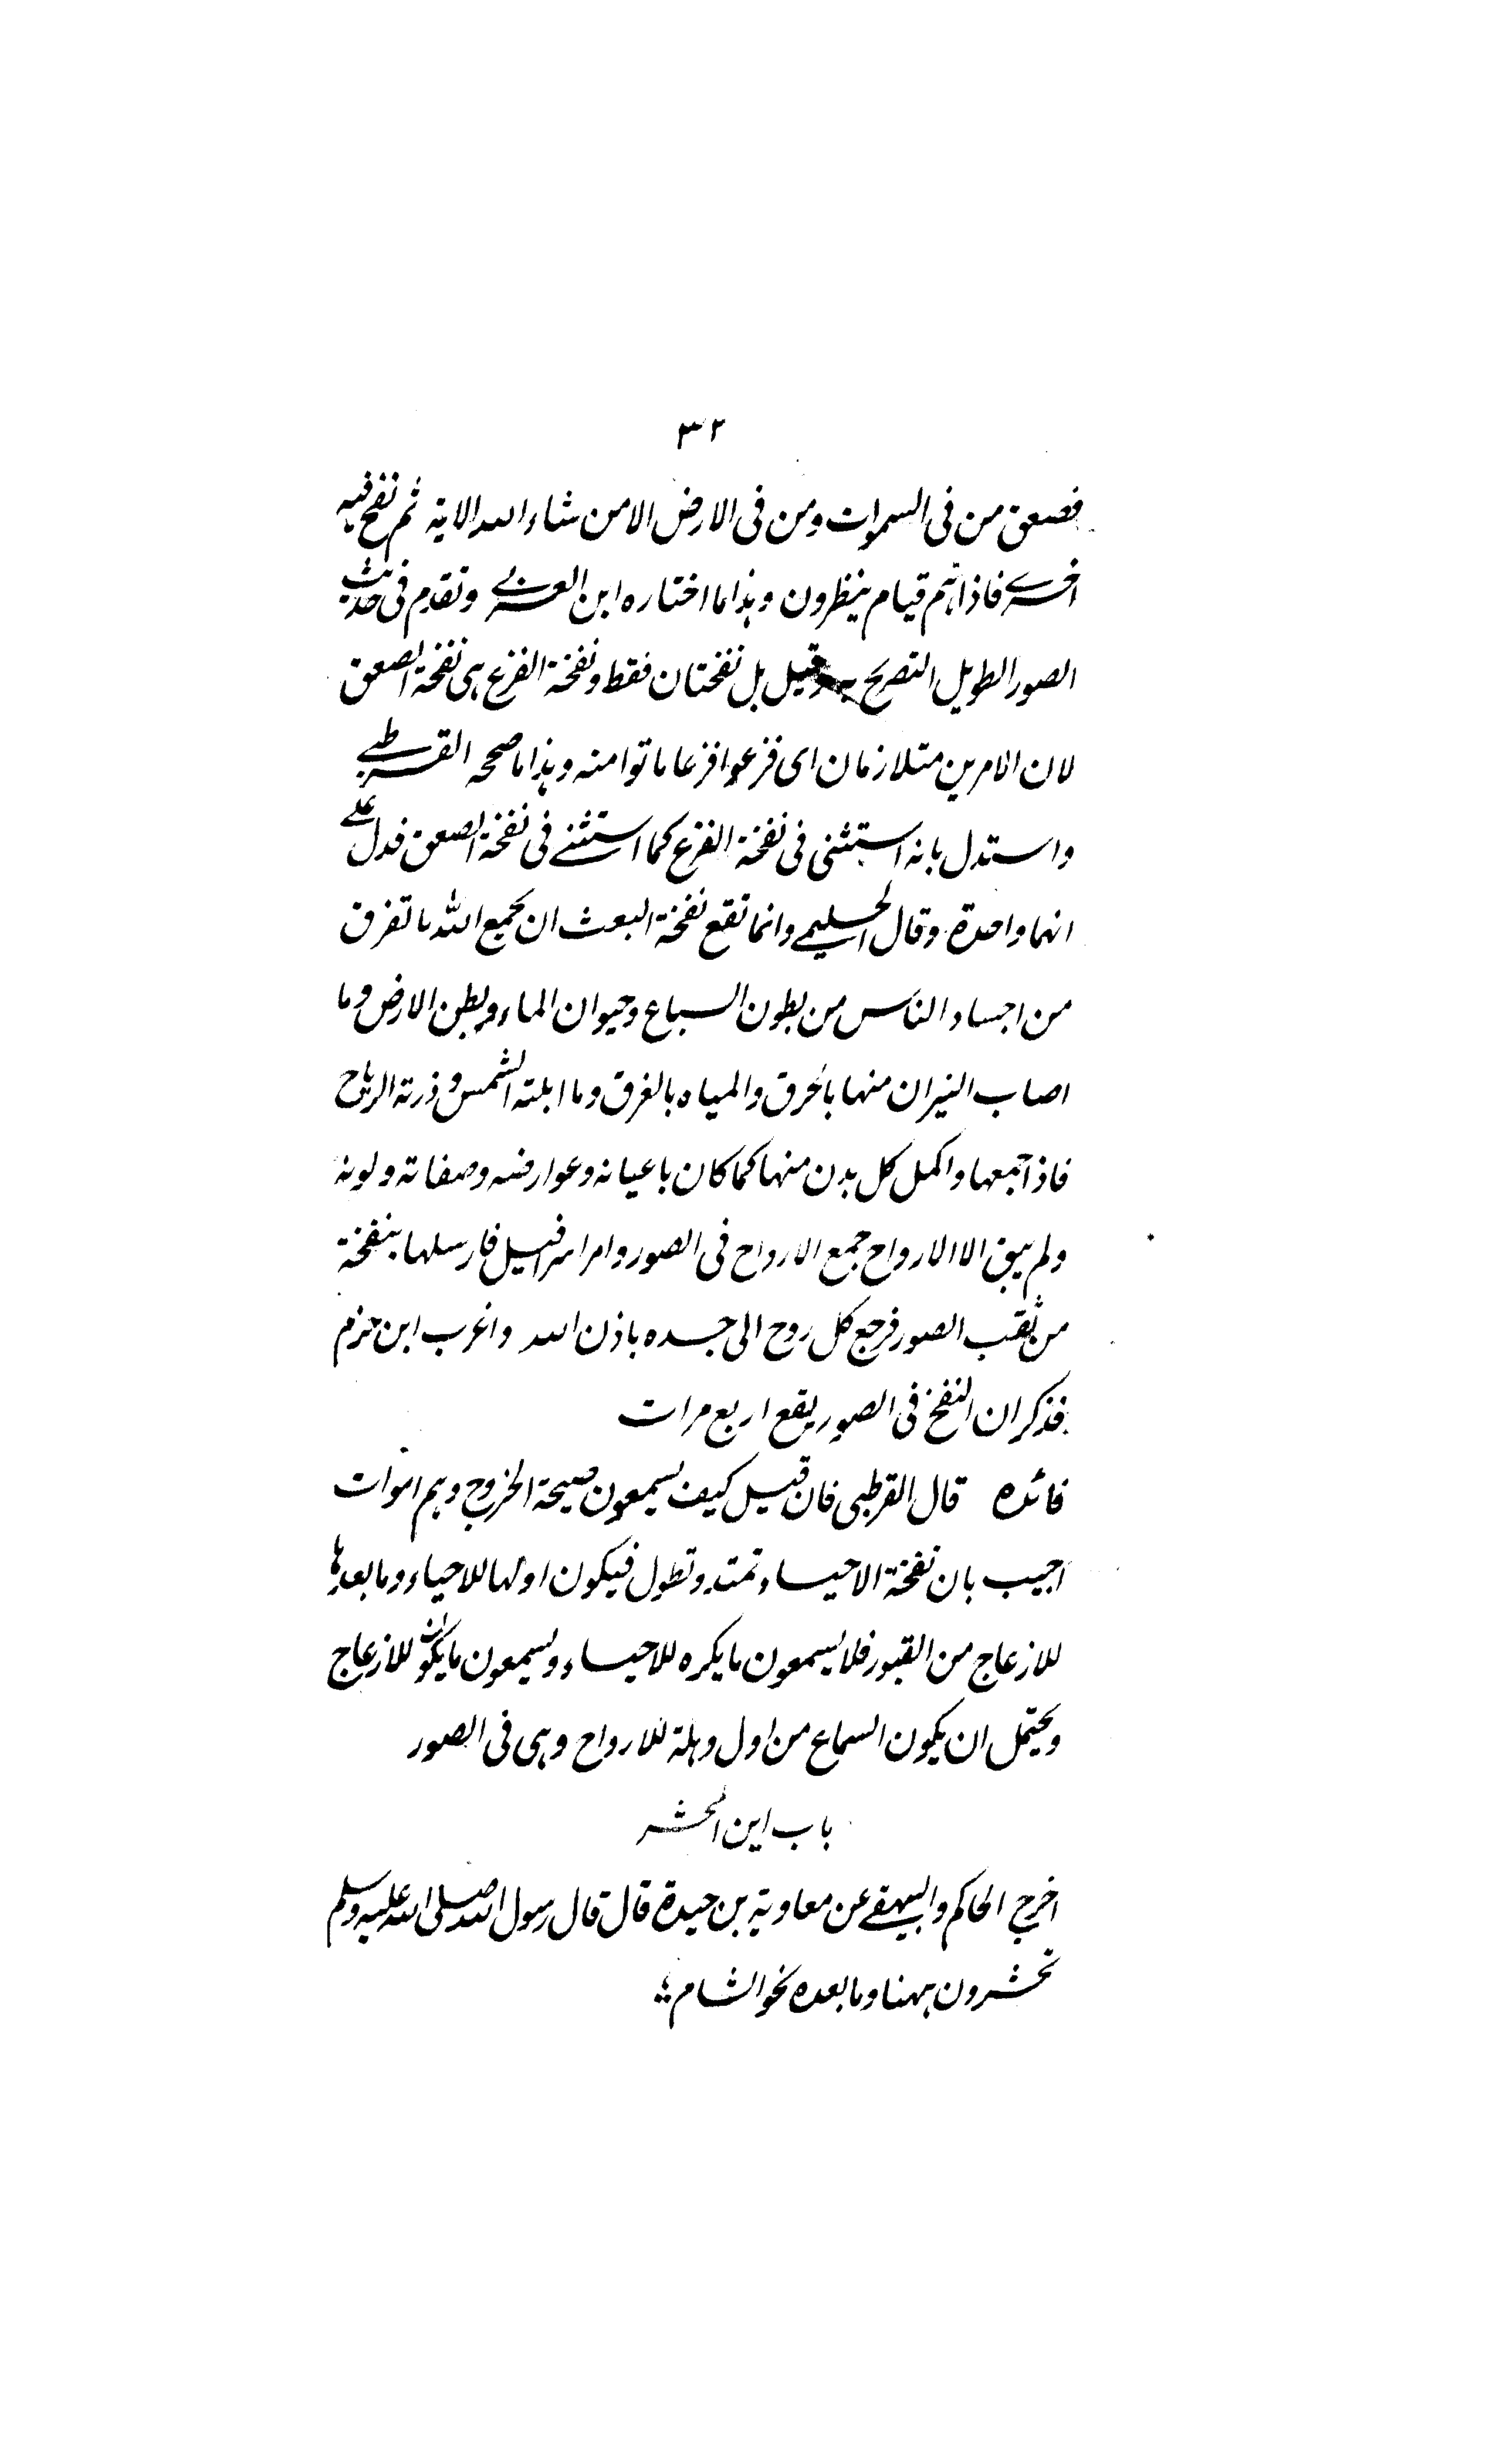 ٣٢
فصعق من فى السموات ومن فى الارض الا من شاء الله الاية ثم نفخ فيه
اخرى فاذا هم قيام ينظرون وهذا ما اختاره ابن العربي وتقدم فى حديث
الصور الطويل التصريح به وقيل بل نفختان فقط ونفخة الفزع هى نفخة الصعق
لان الامرين متلازمان اى فزعوا فزعا ماتوا منه وهذا ما صححه القرطبي
واستدل بانه استثنى فى نفخة الفزع كما استثنے فى نفخة الصعق فدل على
انهما واحدة وقال الحليمي وانما تقع نفخة البعث ان يجمع الله ما تفرق
من اجساد الناس من بطون السباع وحيوان الماء وبطن الارض وما
اصاب النيران منها بالحرق والمياه بالغرق وما ابلته الشمس وذرته الرياح
فاذا جمعها واكمل كل بدن منها كما كان باعيانه وعوارضه وصفاته ولونه
ولم يبق الا الارواح جمع الارواح فى الصور وامر اسرافيل فارسلها بنفخة
من ثقب الصور فرجع كل روح الى جسده باذن الله واغرب ابن حزم
فذكر ان النفخ فى الصور يقع اربع مرات
فائده قال القرطبى فان قيل كيف يسمعون صيحة الخروج وهم اموات
اجيب بان نفخة الاحياء تمتد وتطول فيكون اولها للاحياء وما بعدها
للازعاج من القبور فلا يسمعون ما يكره للاحياء ويسمعون ما يكون للازعاج
ويحتمل ان يكون السماع من اول وهلة للارواح وهى فى الصور
باب اين المحشر
اخرج الحاكم والبيهقے عن معاوية بن حيدة قال قال رسول الله صلى الله عليه وسلم
تحشرون ههنا وما بعده نحو الشام